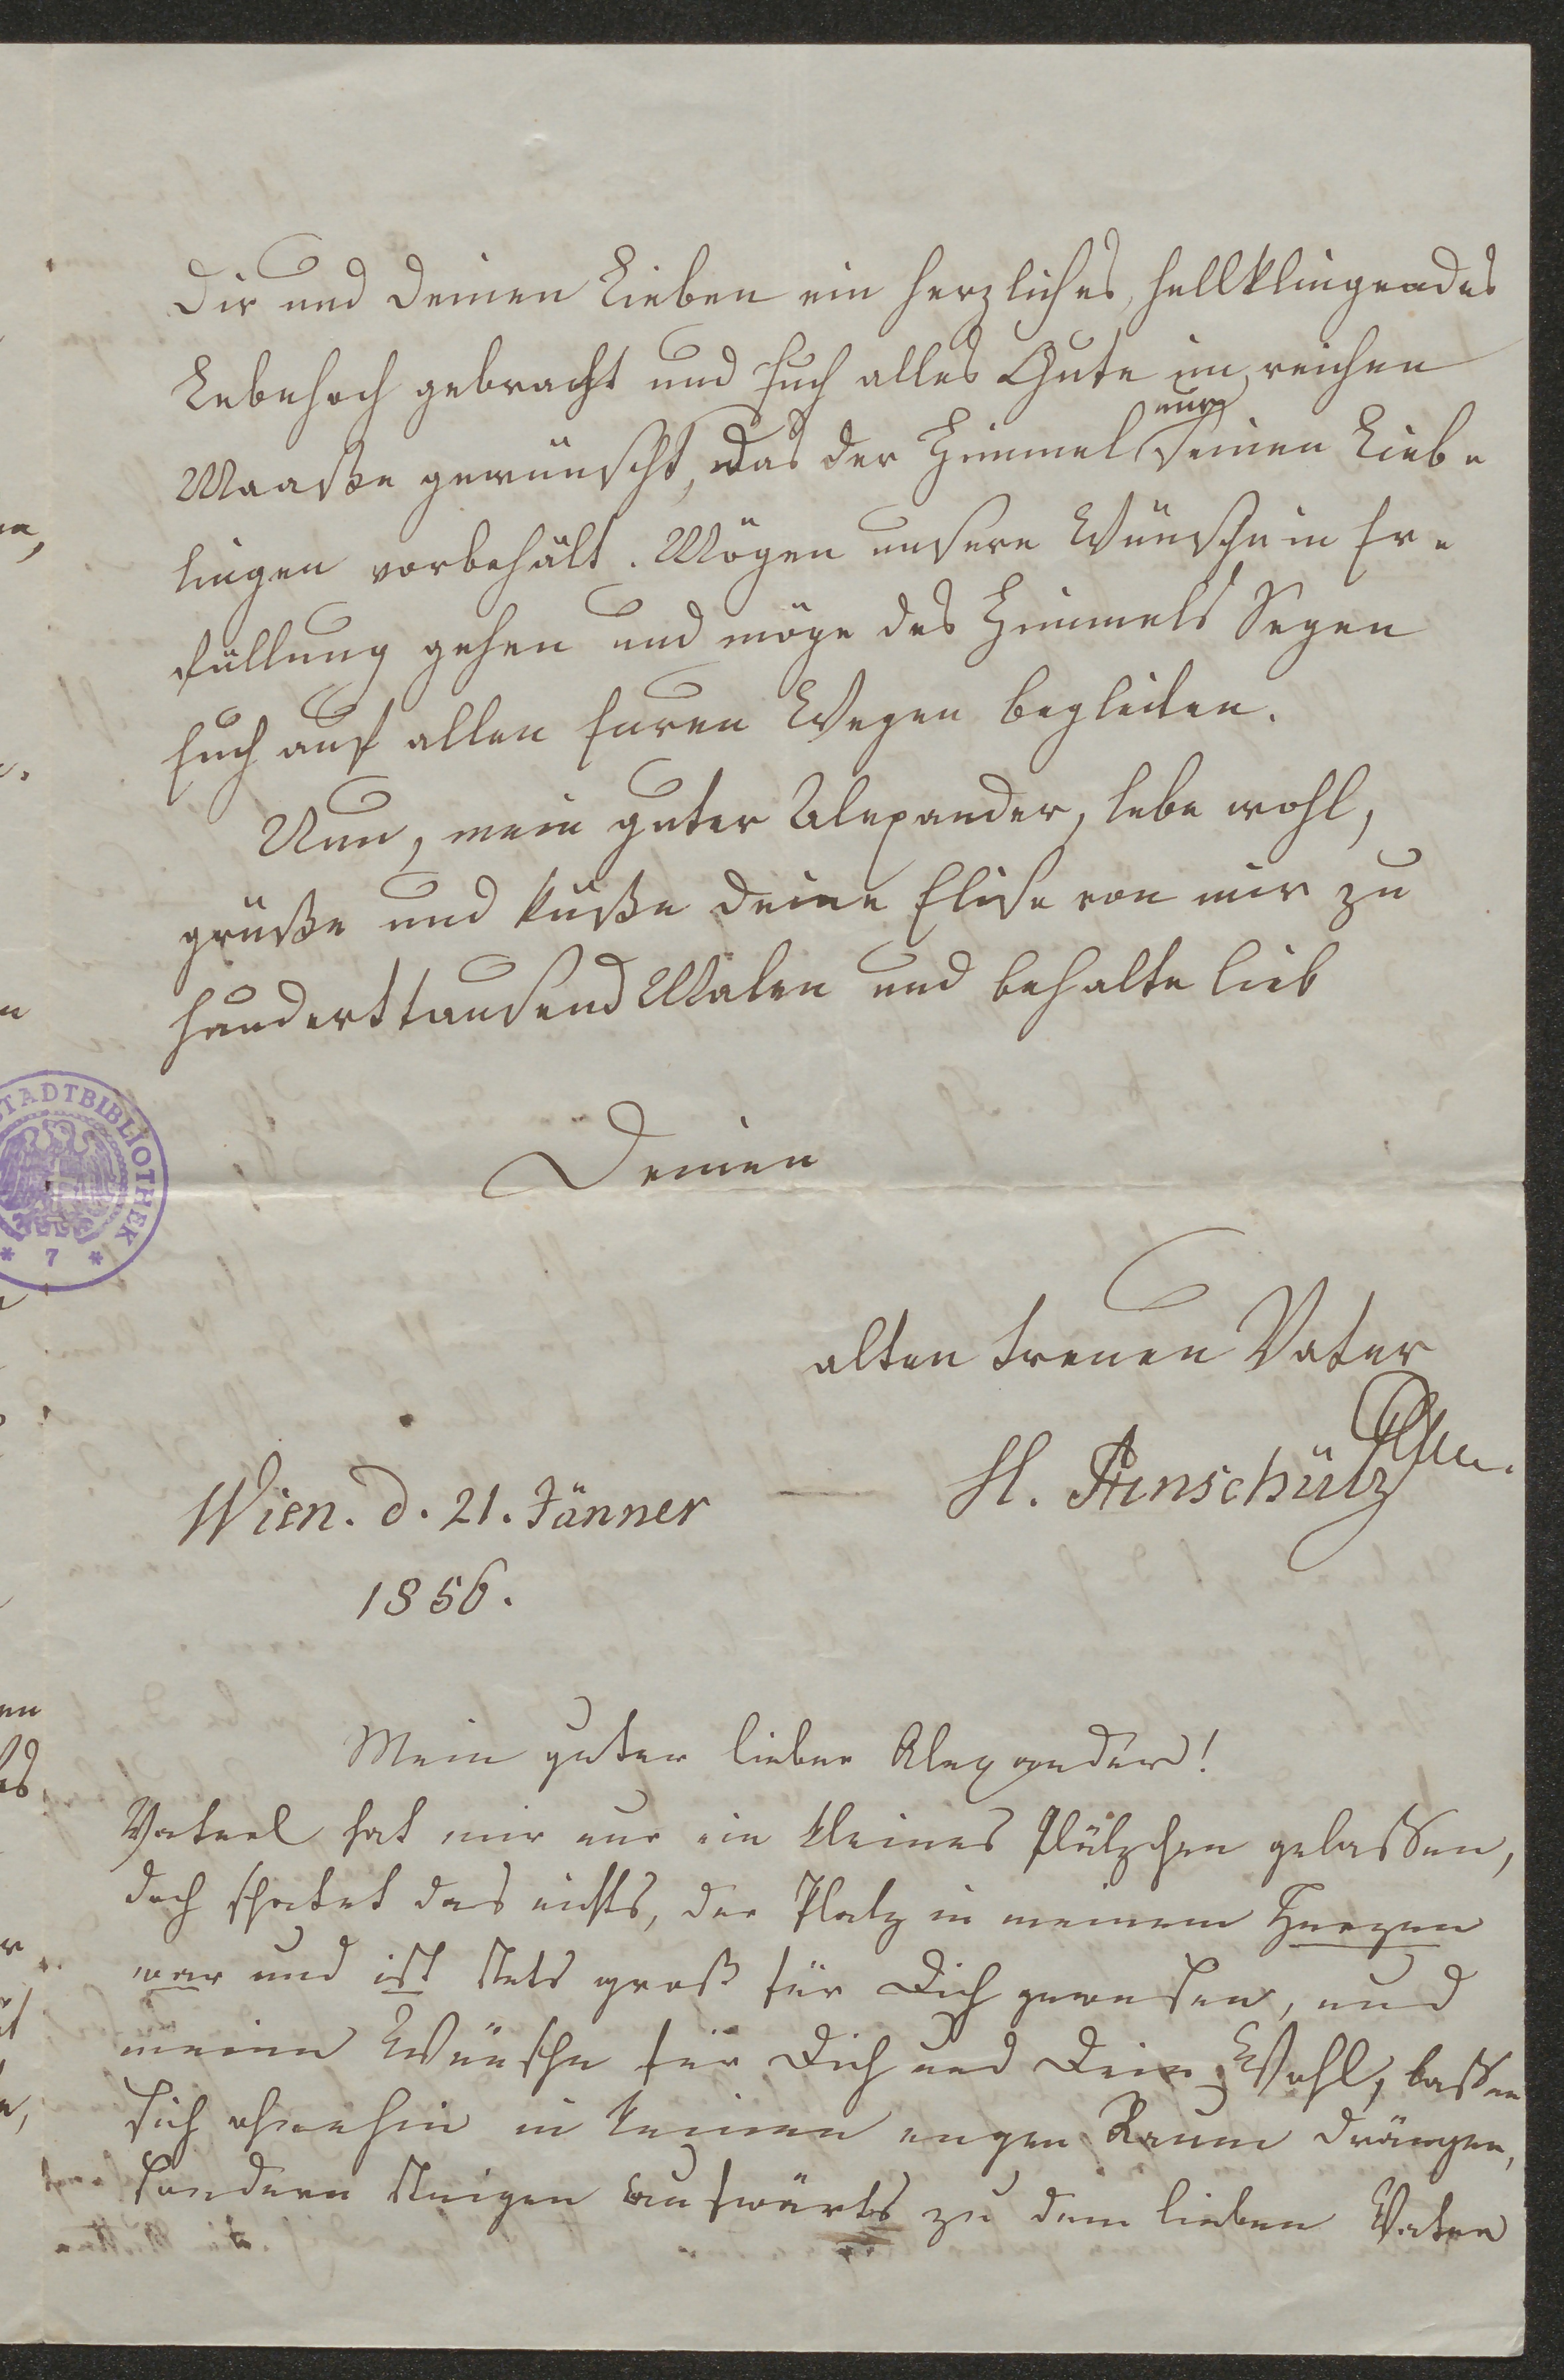 Dir und Deinen Lieben ein herzliches, hellklingendes
Lebehoch gebracht und Euch alles Gute im reichen
Maaße gewünscht, das der Himmel nur seinen Lieb-
lingen vorbehält. Mögen unsere Wünsche in Er-
füllung gehen und möge des Himmels Segen
Euch auf allen Euren Wegen begleiten.
Nun, mein guter Alexander, lebe wohl,
grüße und küße Deine Elise von mir zu
hunderttausend Malen und behalte lieb
Deinen
alten treuen Vater
H. Anschütz
Wien. d. 21. Jänner
1856.
Mein guter lieber Alexander!
Vaterl hat mir nur ein kleines Plätzchen gelassen,
doch schatet das nichts, der Platz in meinem Herzen
war und ist stets groß für Dich gewesen, und
meine Wünsche für Dich und Dein Wohl, lassen
sich ohnehin in keinen engen Raum drängen,
sondern steigen aufwärts zu dem lieben Vater
STADTBIBLIOTHEK
* 7 *